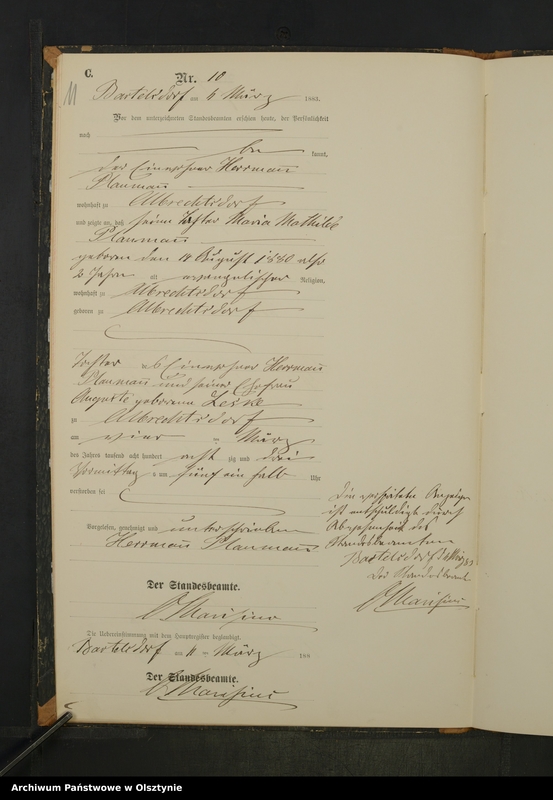 C.
11
Nr. 10
Bartelsdorf am 6 März 1883.
Vor dem unterzeichneten Standesbeamten erschien heute, der Persönlichkeit
nach
be kannt,
der Einwohner Herrmann
Plaumann
wohnhaft zu Albrechtsdorf
und zeigte an, daß seine Tochter Maria Mathilde
Plaumann
geboren den August 1880 also
2 Jahre alt evangelischer Religion,
wohnhaft zu Albrechtsdorf
geboren zu Albrechtsdorf
Tochter Einwohner Herrman
Plaumann und seiner Ehefrau
Auguste geborene
zu Albrechtsdorf
am vier ten März
des Jahres tausend acht hundert acht zig und drei
Vormittag s um fünf ein halb Uhr
verstorben sei
Vorgelesen, genehmigt und unterschrieben
Herrmann Plaumann
Der Standesbeamte.
Die verspätete Anzeige
ist entschuldigt durch
Abwesenheit des
Standesbeamten
Bartelsdorf
Der Standesbeamte
Die Uebereinstimmung mit dem Hauptregister beglaubigt.
Bartelsdorf am März 188
Der Standesbeamte.
Archiwum Państwowe w Olsztynie